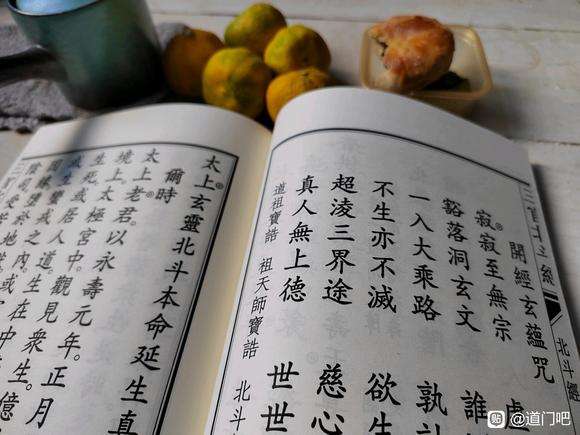 北斗經
開經玄蘊咒
寂寂至無宗 虛
豁落洞玄文 誰
一入大乘路 孰計
不生亦不滅 欲生
超凌三界途 慈心
真人無上德 世世
道祖寶誥 祖天師寶誥 北斗
太上玄靈北斗本命延生真
爾時
太上老君。以永壽元年。正月
境上。太極宮中。觀見眾生。億
生死。或居人道。
貼 @道门吧